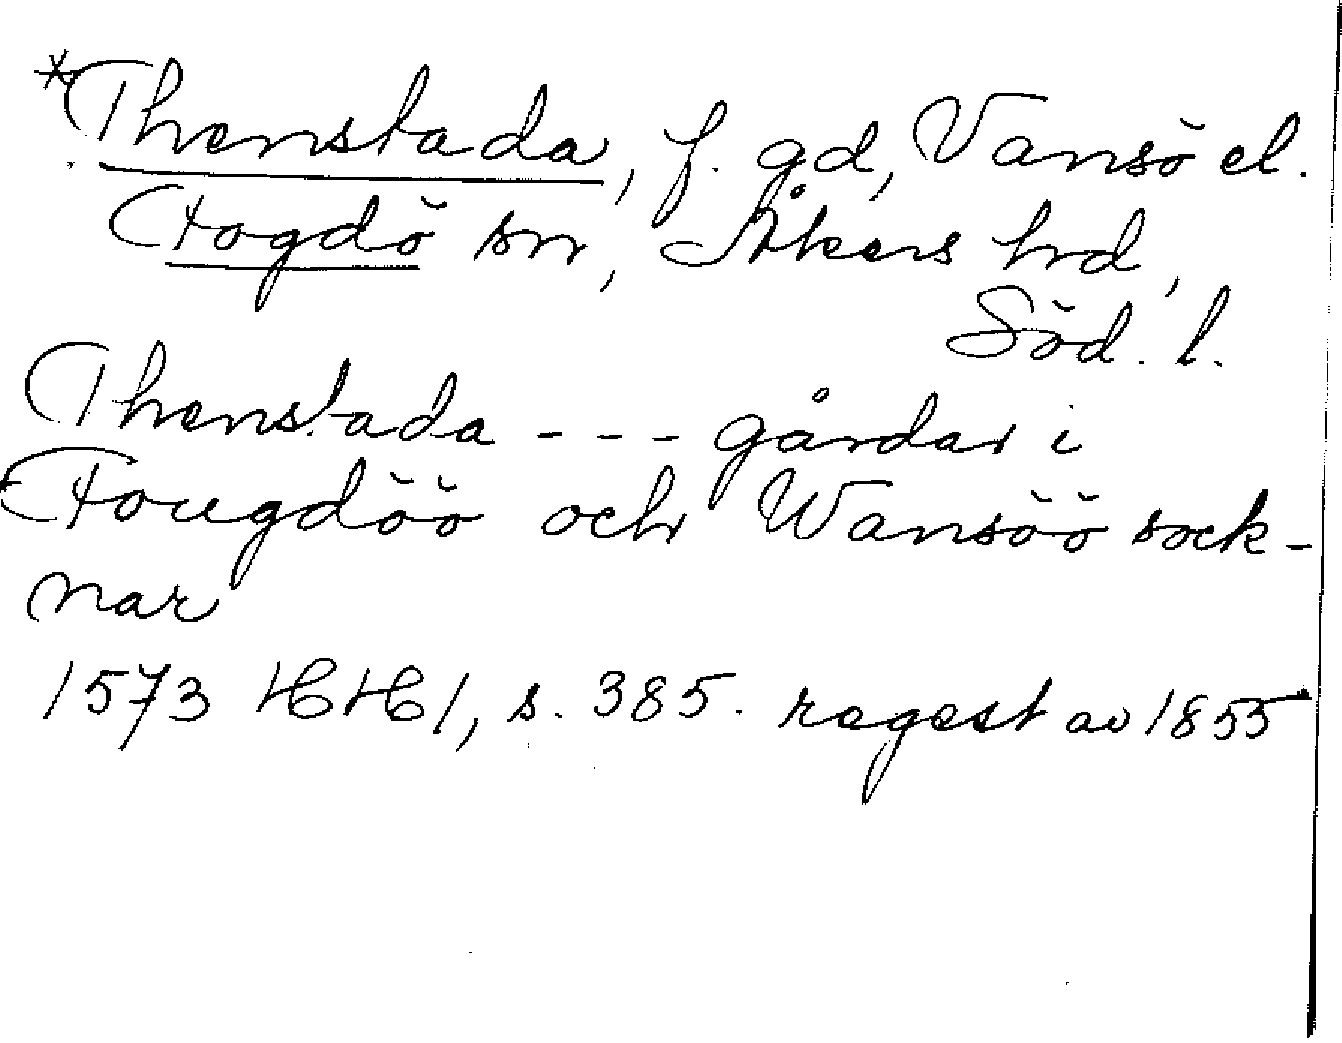 *Thenstada, f. gd, Vansö el.
Fogdö sn, Åkers hd,
Söd. l.
Thenstada - - - gårdar i
Fougdöö och Wansöö sock-
nar
1573 HH1, s. 385. regest av 1855